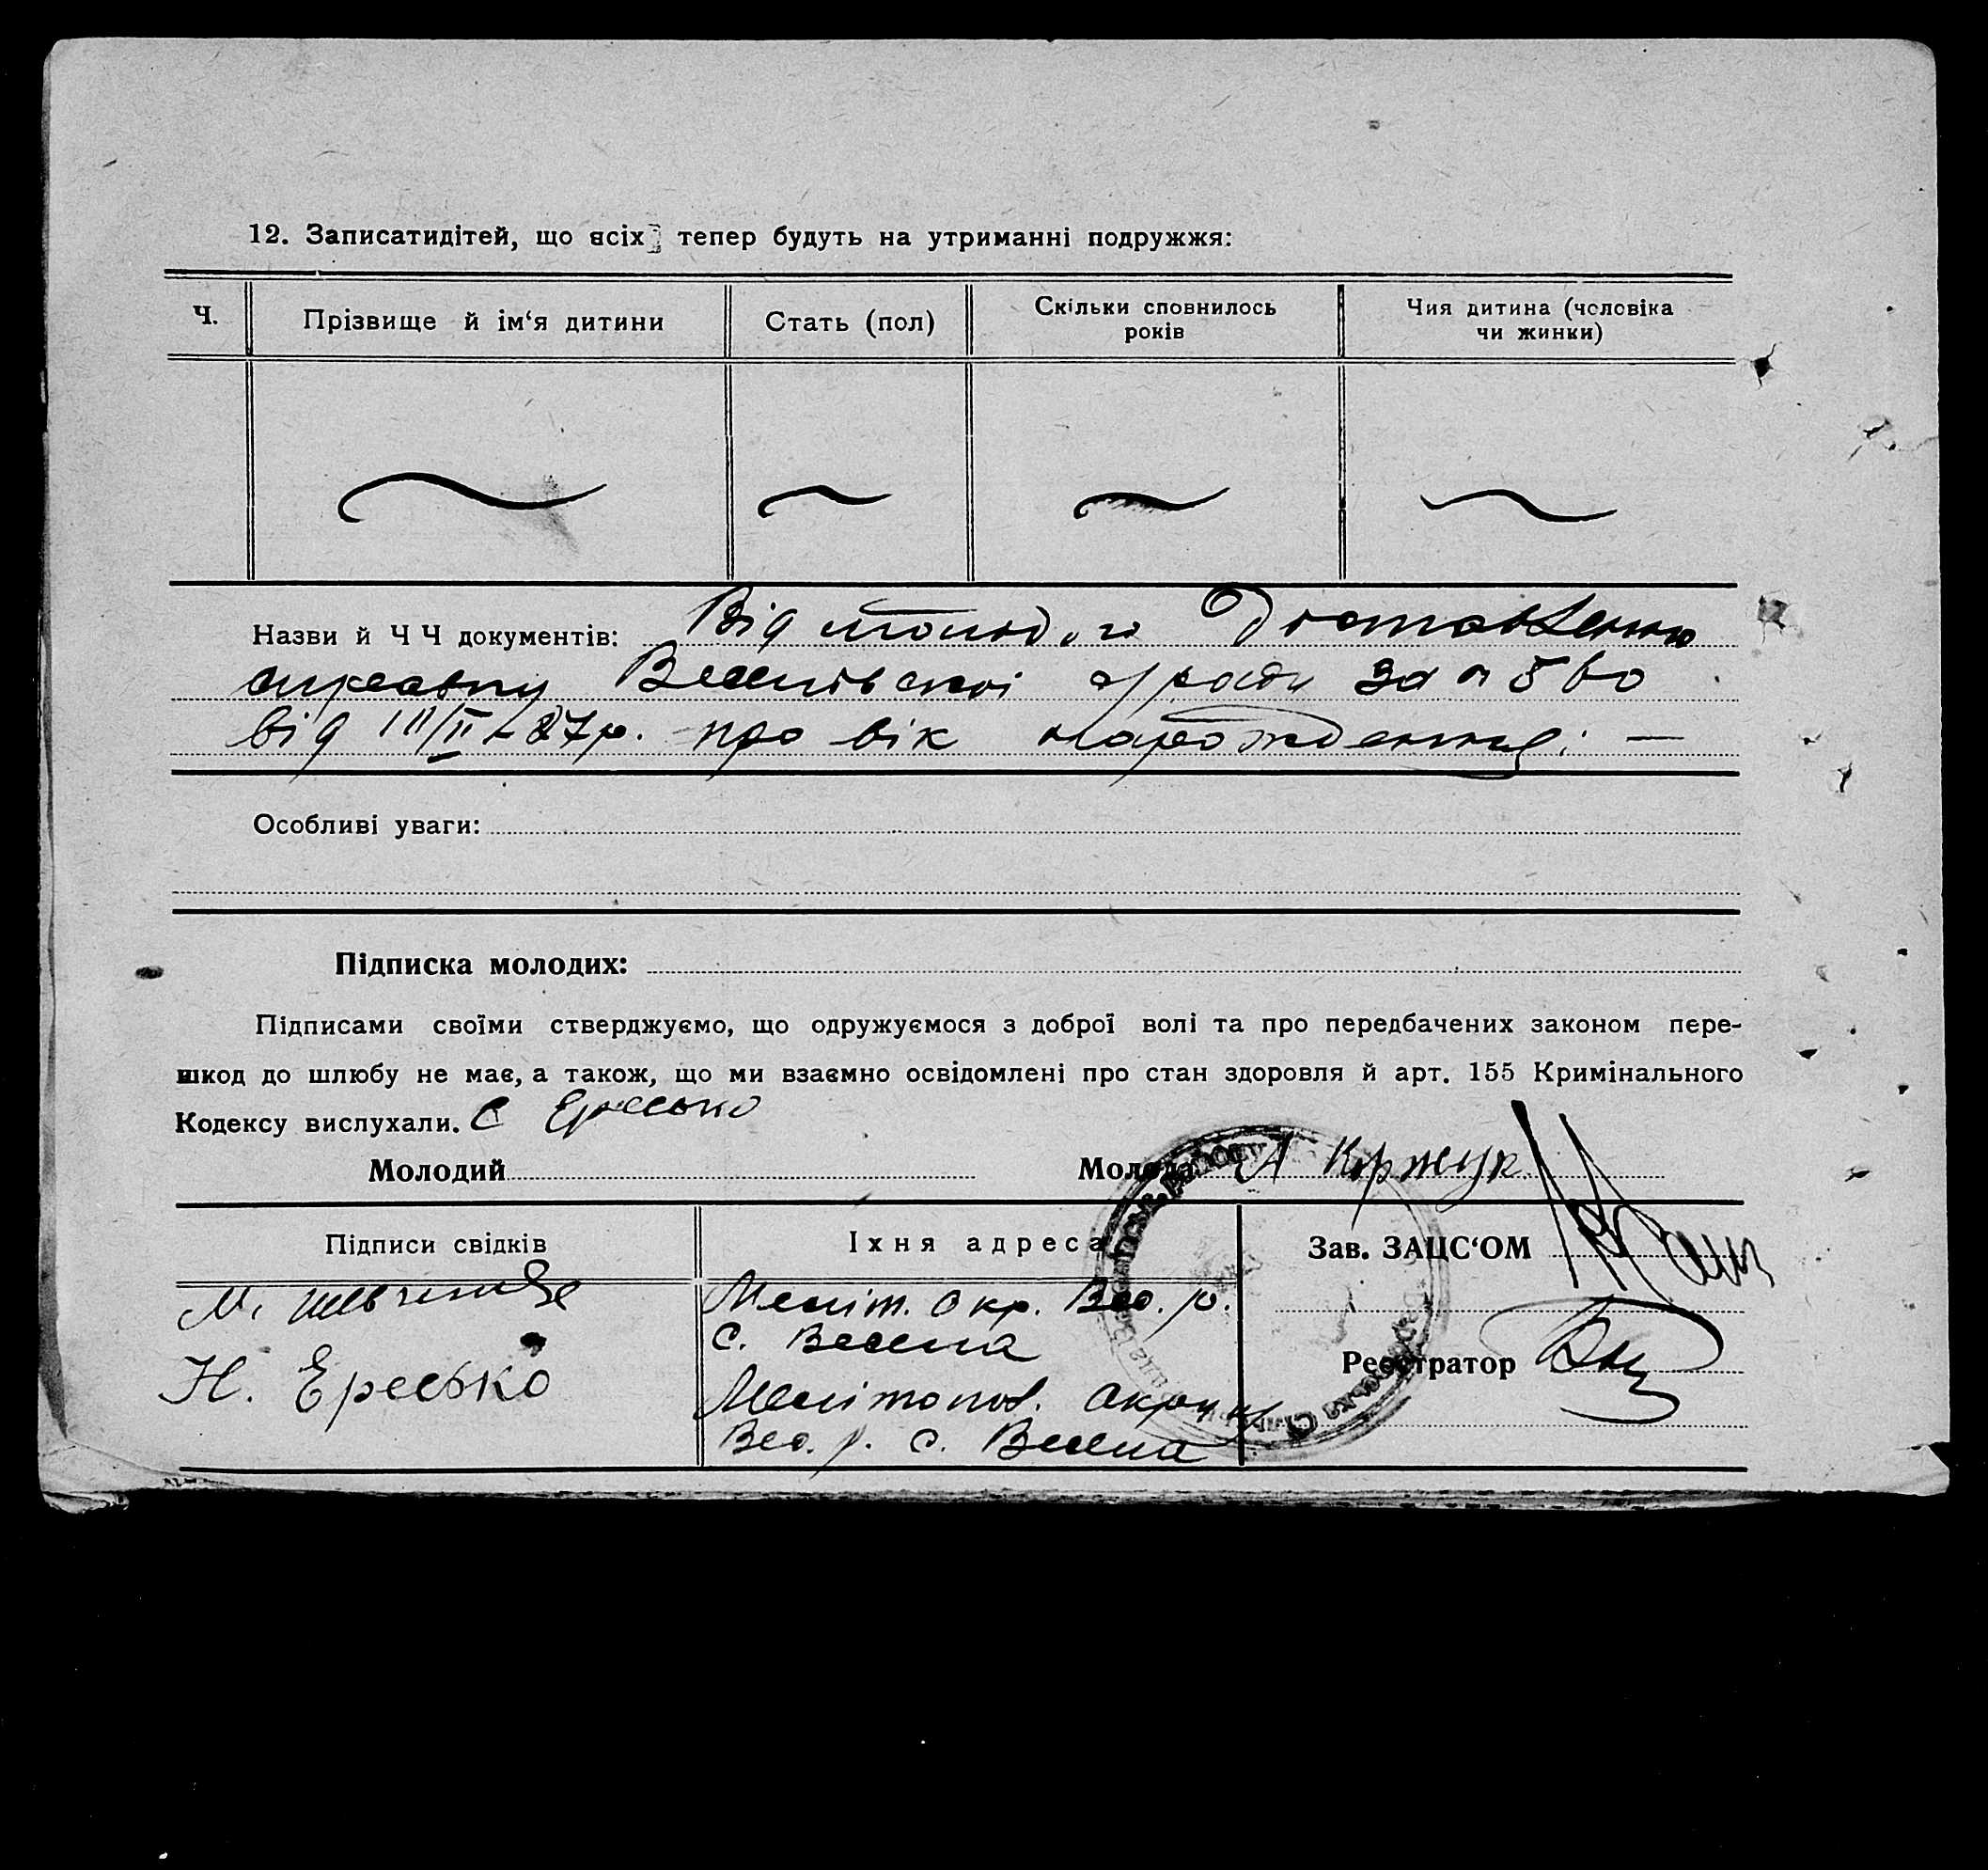 12. Записатидітей, що всіх тепер будуть на утриманні подружжя:
Ч. Прізвище й ім‘я дитини Стать (пол) Скільки сповнилось років Чия дитина (чоловіка чи жинки)
Назви й Ч Ч документів: Від
Веселівської за № 560
від 111/II - 27р. про вік нарождення: —
Особливі уваги:
Підписка молодих:
Підписами своїми стверджуємо, що одружуємося з доброї волі та про передбачених законом пере-
шкод до шлюбу не має, а також, що ми взаємно освідомлені про стан здоровля й арт. 155 Кримінального
Кодексу вислухали. С Ересько
Молодий Молода А Коржук
Підписи свідків Їхня адреса Зав. ЗАЦС‘ОМ
М. Шевченко Меліт. Окр. Вес. р.
с. Весела
Реєстратор
Н. Ересько Мелітопов. Округи
Вес. р. с. Весела